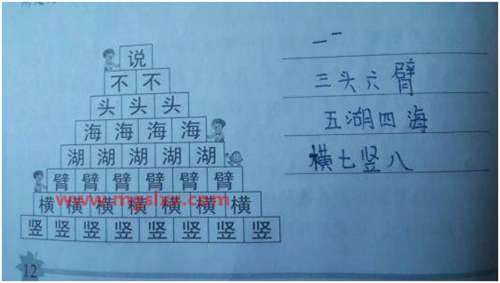 说
不 不
头 头 头
海 海 海 海
湖 湖 湖 湖 湖
臂 臂 臂 臂 臂 臂
横 横 横 横 横 横 横
竖 竖 竖 竖 竖 竖 竖 竖
12
三头六臂
五湖四海
横七竖八